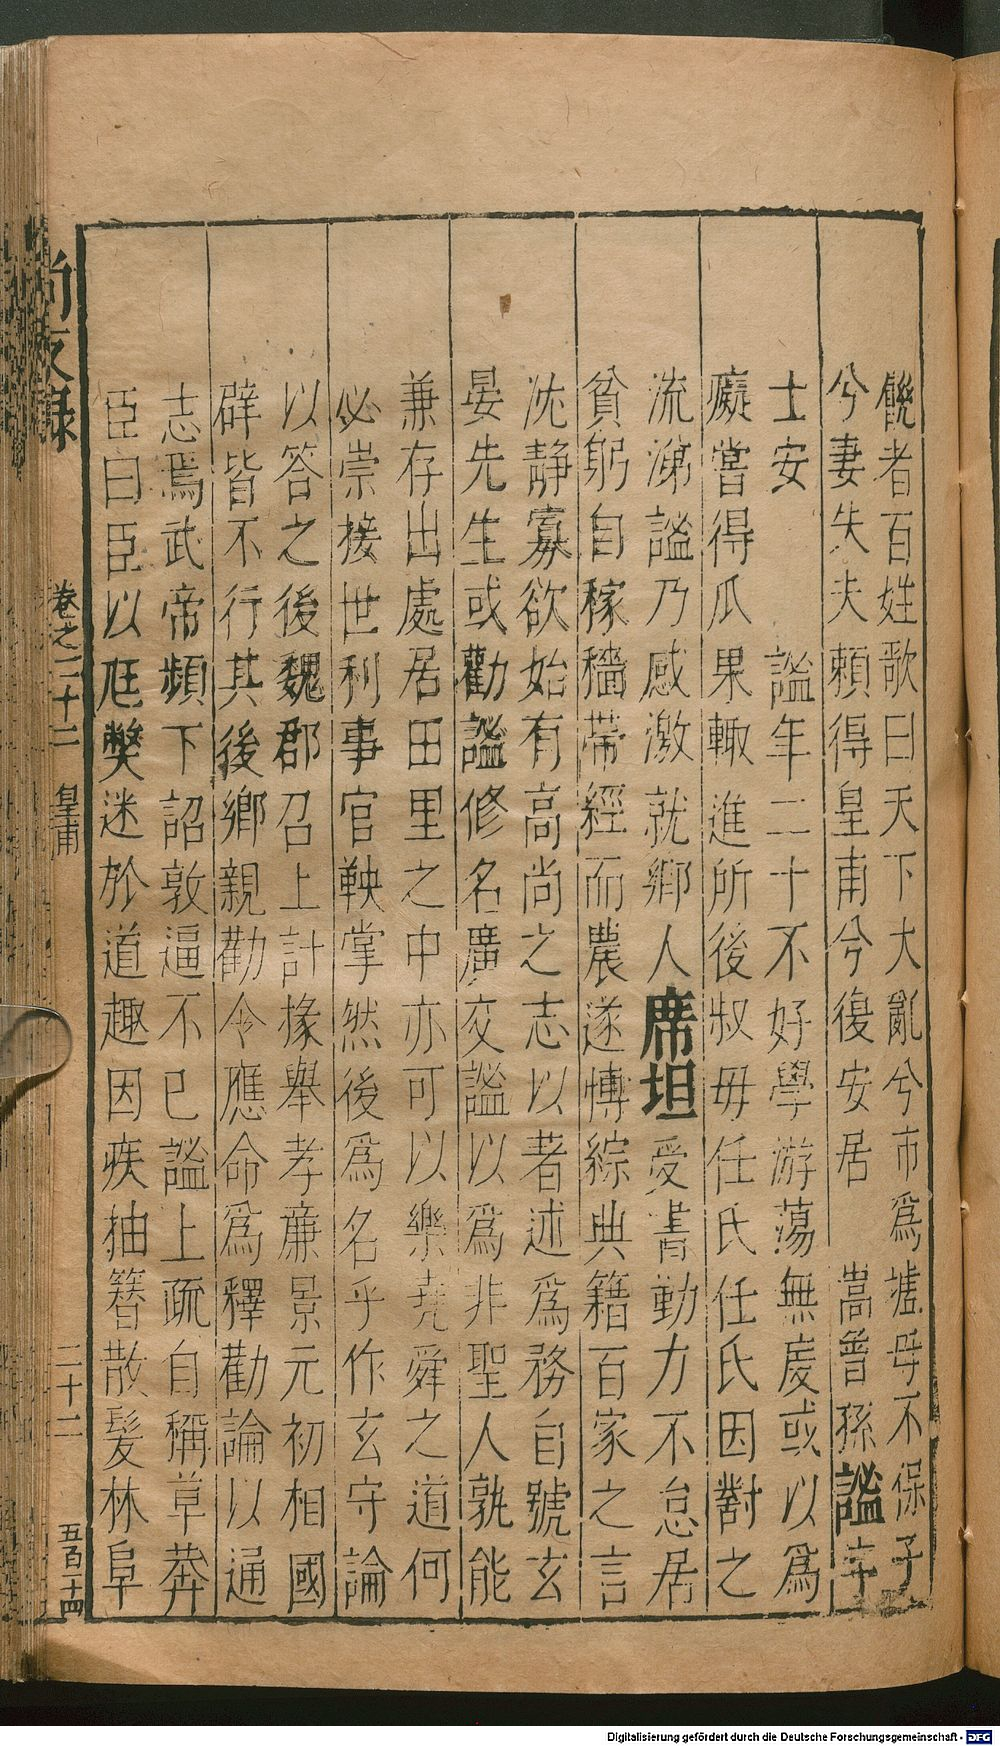 饑者百姓歌曰天下大亂兮市爲墟母不保子
兮妻失夫頼得皇甫兮復安居　嵩曾孫謐字
士安　　謐年二十不好學游蕩無度或以爲
癡嘗得瓜果輙進所後叔母任氏任氏因對之
流涕謐乃感激就鄉人席坦受書勤力不怠居
貧躬自稼穡帶經而農遂博綜典籍百家之言
沈静寡欲始有高尚之志以著述爲務自號玄
晏先生或勸謐修名廣交謐以爲非聖人孰能
兼存出處居田里之中亦可以樂堯舜之道何
必崇接世利事官鞅掌然後爲名乎作玄守論
以答之後魏郡召上計掾舉孝廉景元初相國
辟皆不行其後鄉親勸令應命爲釋勸論以通
志焉武帝頻下詔敦逼不已謐上疏自稱草莽
臣曰臣以尫弊迷於道趣因疾抽簪散髮林阜
尚友録
卷之二十二
皇甫
二十二
五百二十四
Digitalisierung gefördert durch die Deutsche Forschungsgemeinschaft - DFG